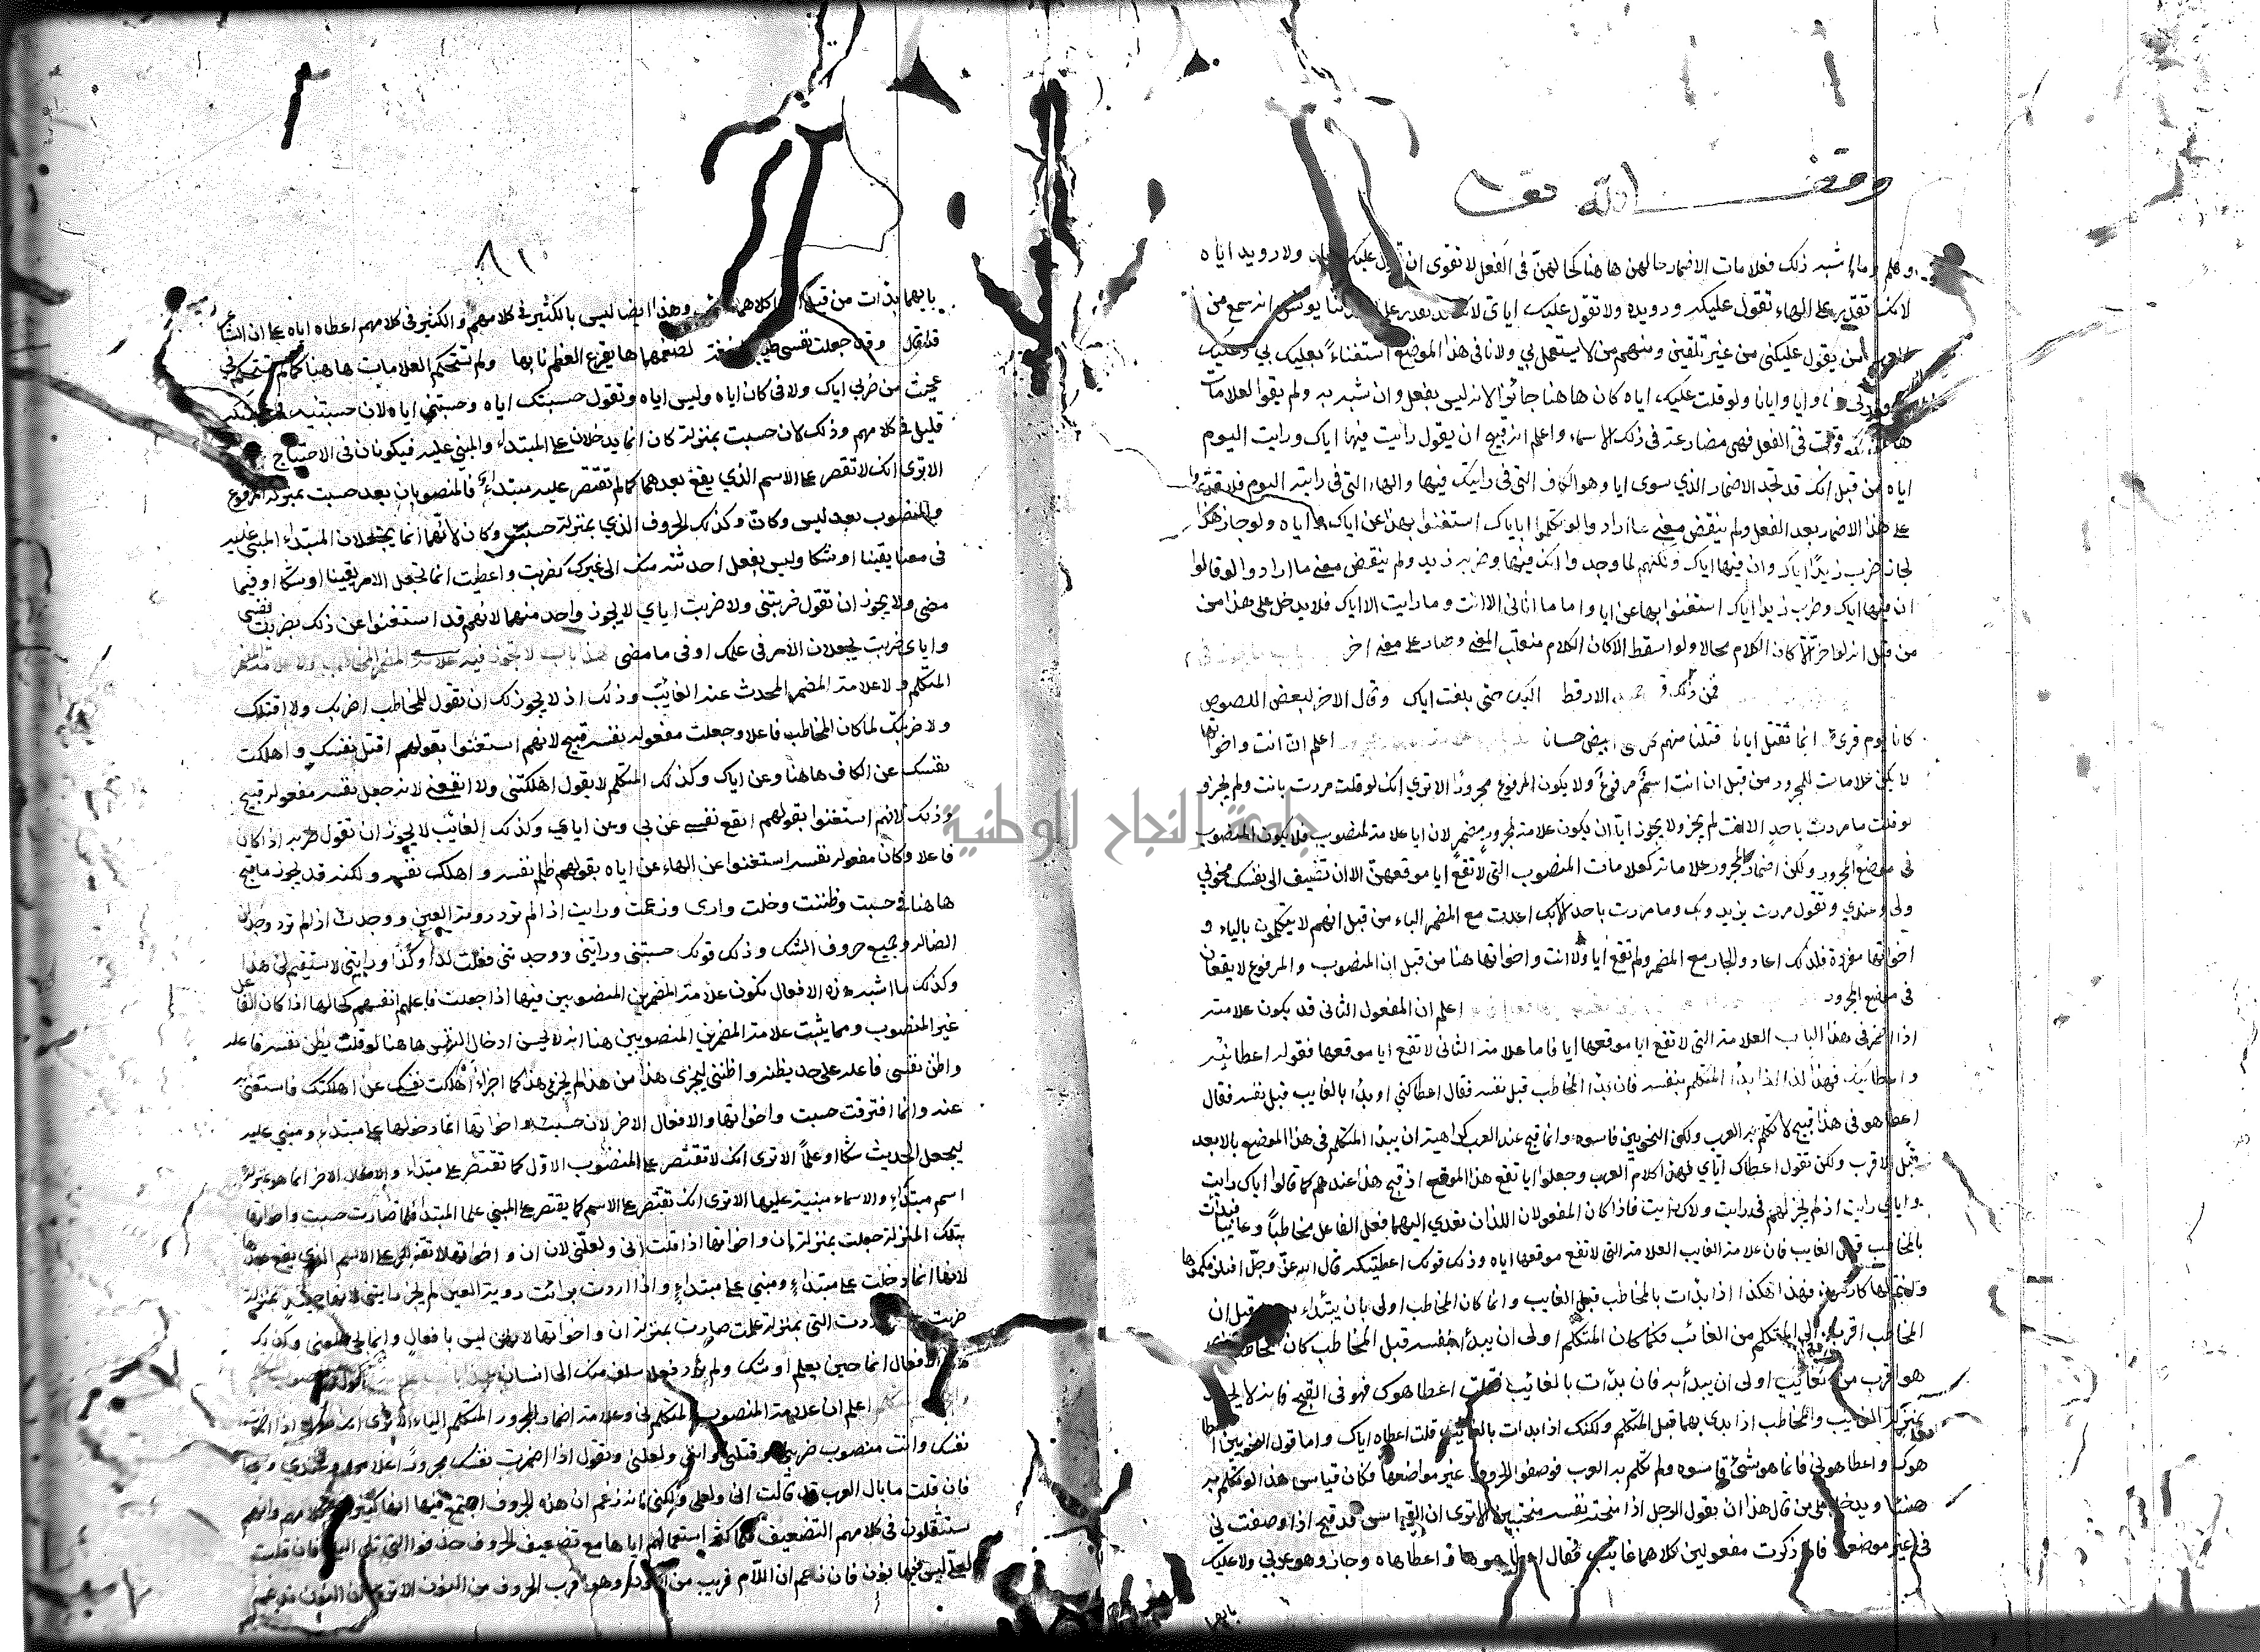 وقف لله تعا
وهلم وما اشبه ذلك فعلامات الاضمار حالهن هاهنا كحالهن في الفعل لا تقوى ان تقول عليك ولا رويد اياه
لانك تقدر على الهاء تقول عليكه ورويده ولا تقول عليك اياي لانك تقدر على يونس انه سمع من
يقول عليكني من غير تلقين ومنهم من لا يستعمل ني ولا نا في هذا الموضع استغناء بعليك بي وعليك
نا وايا وايانا ولو قلت عليك اياه كان هاهنا جائزا لانه ليس بفعل وان شبه به ولم يقو العلامات
في الفعل فهي مضارعة في ذلك الاسماء واعلم انه قبيح ان يقول رايت فيها اياك ورايت اليوم
اياه من قبل انك قد تجد الاضمار الذي سوى ايا وهو الكاف التي في رايتك فيها والهاء التي في رايته اليوم
على هذا الاضمار بعد الفعل ولم ينقض معنى ما ارادوا لو تكلموا باياك استغنوا بهذا عن اياك واياه ولو جاز هذا
لجاز ضرب زيد اياك وان فيها اياك ولكنهم لما وجدوا انك فيها وضربه زيد ولم ينقض معنى ما ارادوا لو قالوا
ان فيها اياك وضرب زيد اياك استغنوا بها عن ايا واما ما اتاني الا انت وما رايت الا اياك فلا يدخل على هذا من
من قبل انه لو اخر الا كان الكلام محالا ولو اسقط الا كان الكلام منقلب المعنى وصار على معنى اخر
فمن ذلك الارقط اليك حتى بلغت اياك وقال الاخر لبعض اللصوص
كانا يوم قرى انما نقتل ايانا قتلنا منهم ابيض حسانا اعلم ان انت واخواتها
لا يكن علامات لمجرور من قبل ان انت اسم مرفوع ولا يكون المرفوع مجرورا الا ترى انك لو قلت مررت بانت ولم يجز و
لو قلت ما مررت باحد الا انت لم يجز ولا يجوز ايا ان يكون علامة لمجرور مضمر لان ايا علامة لمنصوب فلا يكون المنصوب
في موضع المجرور ولكن اضمار المجرور علاماته كعلامات المنصوب التي لا تقع ايا موقعهن الا ان تضيف الى نفسك نحو بي
ولي وعندي وتقول مررت بزيد وبك وما مررت باحد الا بك اعدت مع المضمر الباء من قبل انهم لا يتكلمون بالياء و
اخواتها مفردة فلذلك اعادوا الجار مع المضمر ولم تقع ايا ولا انت واخواتها هنا من قبل ان المنصوب والمرفوع لا يقعان
في موضع المجرور اعلم ان المفعول الثاني قد يكون علامته
اذا اضمر في هذا الباب العلامة التي لا تقع ايا موقعها ايا فاما علامة الثاني لا تقع ايا موقعها فقوله اعطانيه
واعطانيك فهذا اذا بدا المتكلم بنفسه فان بدا المخاطب قبل نفسه فقال اعطاكني او بدا بالغايب قبل نفسه فقال
اعطاهوني هذا قبيح لا تكلم به العرب ولكن النحويين قاسوه وانما قبح عند العرب كراهية ان يبدا المتكلم في هذا الموضع بالابعد
قبل الاقرب ولكن تقول اعطاك اياي فهذا كلام العرب وجعلوا ايا تقع هذا الموقع اذ قبح هذا عندهم كما قالوا اياك رايت
واياي رايت اذ لم يجز لهم ني رايت ولا ك رايت فاذا كان المفعولان اللذان تعدى اليهما فعل الفاعل مخاطبا وغايبا فبدات
بالمخاطب قبل الغايب فان علامة الغايب العلامة التي لا تقع موقعها اياه وذلك قولك اعطيتكه قال الله عز وجل انلزمكموها
وانتم لها كارهون فهذا هكذا اذا بدات بالمخاطب قبل الغايب وانما كان المخاطب اولى بان يبتداء به قبل ان
المخاطب اقرب الى المتكلم من الغائب فكما كان المتكلم اولى ان يبدا بنفسه قبل المخاطب كان المخاطب الذي
هو اقرب من الغائب اولى ان يبدا به فان بدات بالغائب فقلت اعطاهوك فهو في القبح فانه لا يجوز
بمنزلة الغايب والمخاطب اذا بدي بهما قبل المتكلم ولكنك اذا بدات بالغايب قلت اعطاه اياك واما قول النحويين
هوك واعطاهوني فانما هو شئ قاسوه ولم تكلم به العرب فوضعوا الحروف غير مواضعها وكان قياس هذا لو تكلم به
هينا ويدخل على من قال هذا ان يقول الرجل اذا منحته نفسه منحتنيني الا ترى ان القياس قد قبح اذا وضعت ني
في غير موضعها فاذا ذكرت مفعولين كلاهما غايب فقال اعطاهوها و اعطاهاه وجاز وهو عربي ولا عليك
بايهما
٨١
بايهما بدات من قبل كلاهما وهذا ايضا ليس بالكثير في كلامهم والكثير في كلامهم اعطاه اياه على ان الشاعر
قد قال وقد جعلت نفسي تطيب لضغمهماها يقرع العظم نابها ولم تستحكم العلامات هاهنا كما لم تستحكم في
عجبت من ضربي اياك ولا في كان اياه وليس اياه وتقول حسبتك اياه وحسبتني اياه لان حسبتنيه
قليل في كلامهم وذلك لان حسبت بمنزلة كان انما يدخلان على المبتداء والمبني عليه فيكونان في الاحتياج
الا ترى انك لا تقتصر على الاسم الذي يقع بعدهما كما لم تقتصر عليه مبتداء فالمنصوبان بعد حسبت بمنزلة المرفوع
والمنصوب بعد ليس وكان وكذلك الحروف الذي بمنزلة حسبت وكان لانهما انما يجعلان المبتداء المبني عليه
في معنا يقينا او شكا وليس بفعل احدثته منك الى غيرك كضربت واعطيت انما تجعل الامر يقينا او شكا او فيما
مضى ولا يجوز ان تقول ضربتني ولا ضربت اياي لا يجوز واحد منهما لانهم قد استغنوا عن ذلك بضربت نفسي
واياي ضربت يجعلان الامر في علمك او في ما مضى هذا باب لا تجوز فيه علامة المضمر المخاطب ولا علامة المضمر
المتكلم ولا علامة المضمر المحدث عنه الغائب وذلك اذ لا يجوز لك ان تقول للمخاطب اضربك ولا اقتلك
ولا ضربتك لما كان المخاطب فاعلا وجعلت مفعوله نفسه قبيح لانهم استغنوا بقولهم اقتل نفسك واهلكت
نفسك عن الكاف هاهنا وعن اياك وكذلك المتكلم لا يقول اهلكتني ولا انفعني لانه جعل نفسه مفعوله قبيح
وذلك لانهم استغنوا بقولهم انفع نفسي عن ني وعن اياي وكذلك الغائب لا يجوز ان تقول ضربه اذا كان
فاعلا وكان مفعوله نفسه استغنوا عن الهاء عن اياه بقولهم ظلم نفسه واهلك نفسه ولكنه قد يجوز ما قبح
هاهنا في حسبت وظننت وخلت وارى وزعمت ورايت اذا لم ترد روية العين ووجدت اذا لم ترد وجدان
الضالة وجميع حروف الشك وذلك قولك حسبتني ورايتني ووجدتني فعلت كذا وكذا ورايتني لا يستقيم لي هذا
وكذلك ما اشبه هذه الافعال تكون علامة المضمرين المنصوبين فيها اذا جعلت فاعلهم انفسهم كحالها اذا كان الفاعل
غير المنصوب ومما يثبت علامة المضمرين المنصوبين هنا انه لا يحسن ادخال النفس هاهنا لو قلت يظن نفسه فاعلة
واظن نفسي فاعلة على حد يظنه واظنني ليجزى هذا من هذا لم يجز هذا كما اجزا اهلكت نفسك عن اهلكتك فاستغني
عنه وانما افترقت حسبت واخواتها والافعال الاخر لان حسبت واخواتها انما دخولها على مبتداء ومبني عليه
ليجعل الحديث شكا او علما الا ترى انك لا تقتصر على المنصوب الاول كما تقتصر على مبتداء والافعال الاخر انما هو بمنزلة
اسم مبتداء والاسماء مبنية عليها الا ترى انك تقتصر على الاسم كما يقتصر على المبني على المبتدا فلما صارت حسبت واخواتها
بتلك المنزلة جعلت بمنزلة ان واخواتها اذا قلت انني ولعلني لان ان واخواتها لا تقتصر على الاسم الذي يقع بعدها
لانها انما دخلت على مبتداء ومبني على مبتداء واذا اردت برايت روية العين لم يجز رايتني لانها بمنزلة
ضربت اردت التي بمنزلة علمت صارت بمنزلة ان واخواتها لانهن ليس بافعال وانما يجئ لمعنى وكذلك
الافعال انما جئن بعلم او شك ولم يرد فعلا سلف منك الى انسان
اعلم ان علامة المنصوب المتكلم ني وعلامة اضمار المجرور المتكلم الياء الا ترى انك تقول اذا اضمرت
نفسك وانت منصوب ضربني وقتلني وانني ولعلني وتقول اذا اضمرت نفسك مجرورا غلامي وعندي ومعي
فان قلت ما بال العرب قد قالت اني ولعلي ولكني فانه زعم ان هذه الحروف اجتمع فيها انها كثيرة في كلامهم وانهم
يستثقلون في كلامهم التضعيف فلما كثر استعمالهم اياها مع تضعيف الحروف حذفوا التي تلي الياء فان قلت
لعل ليس فيها نون فان زعم ان اللام قريب من النون وهو اقرب الحروف من النون الا ترى ان النون تدغم